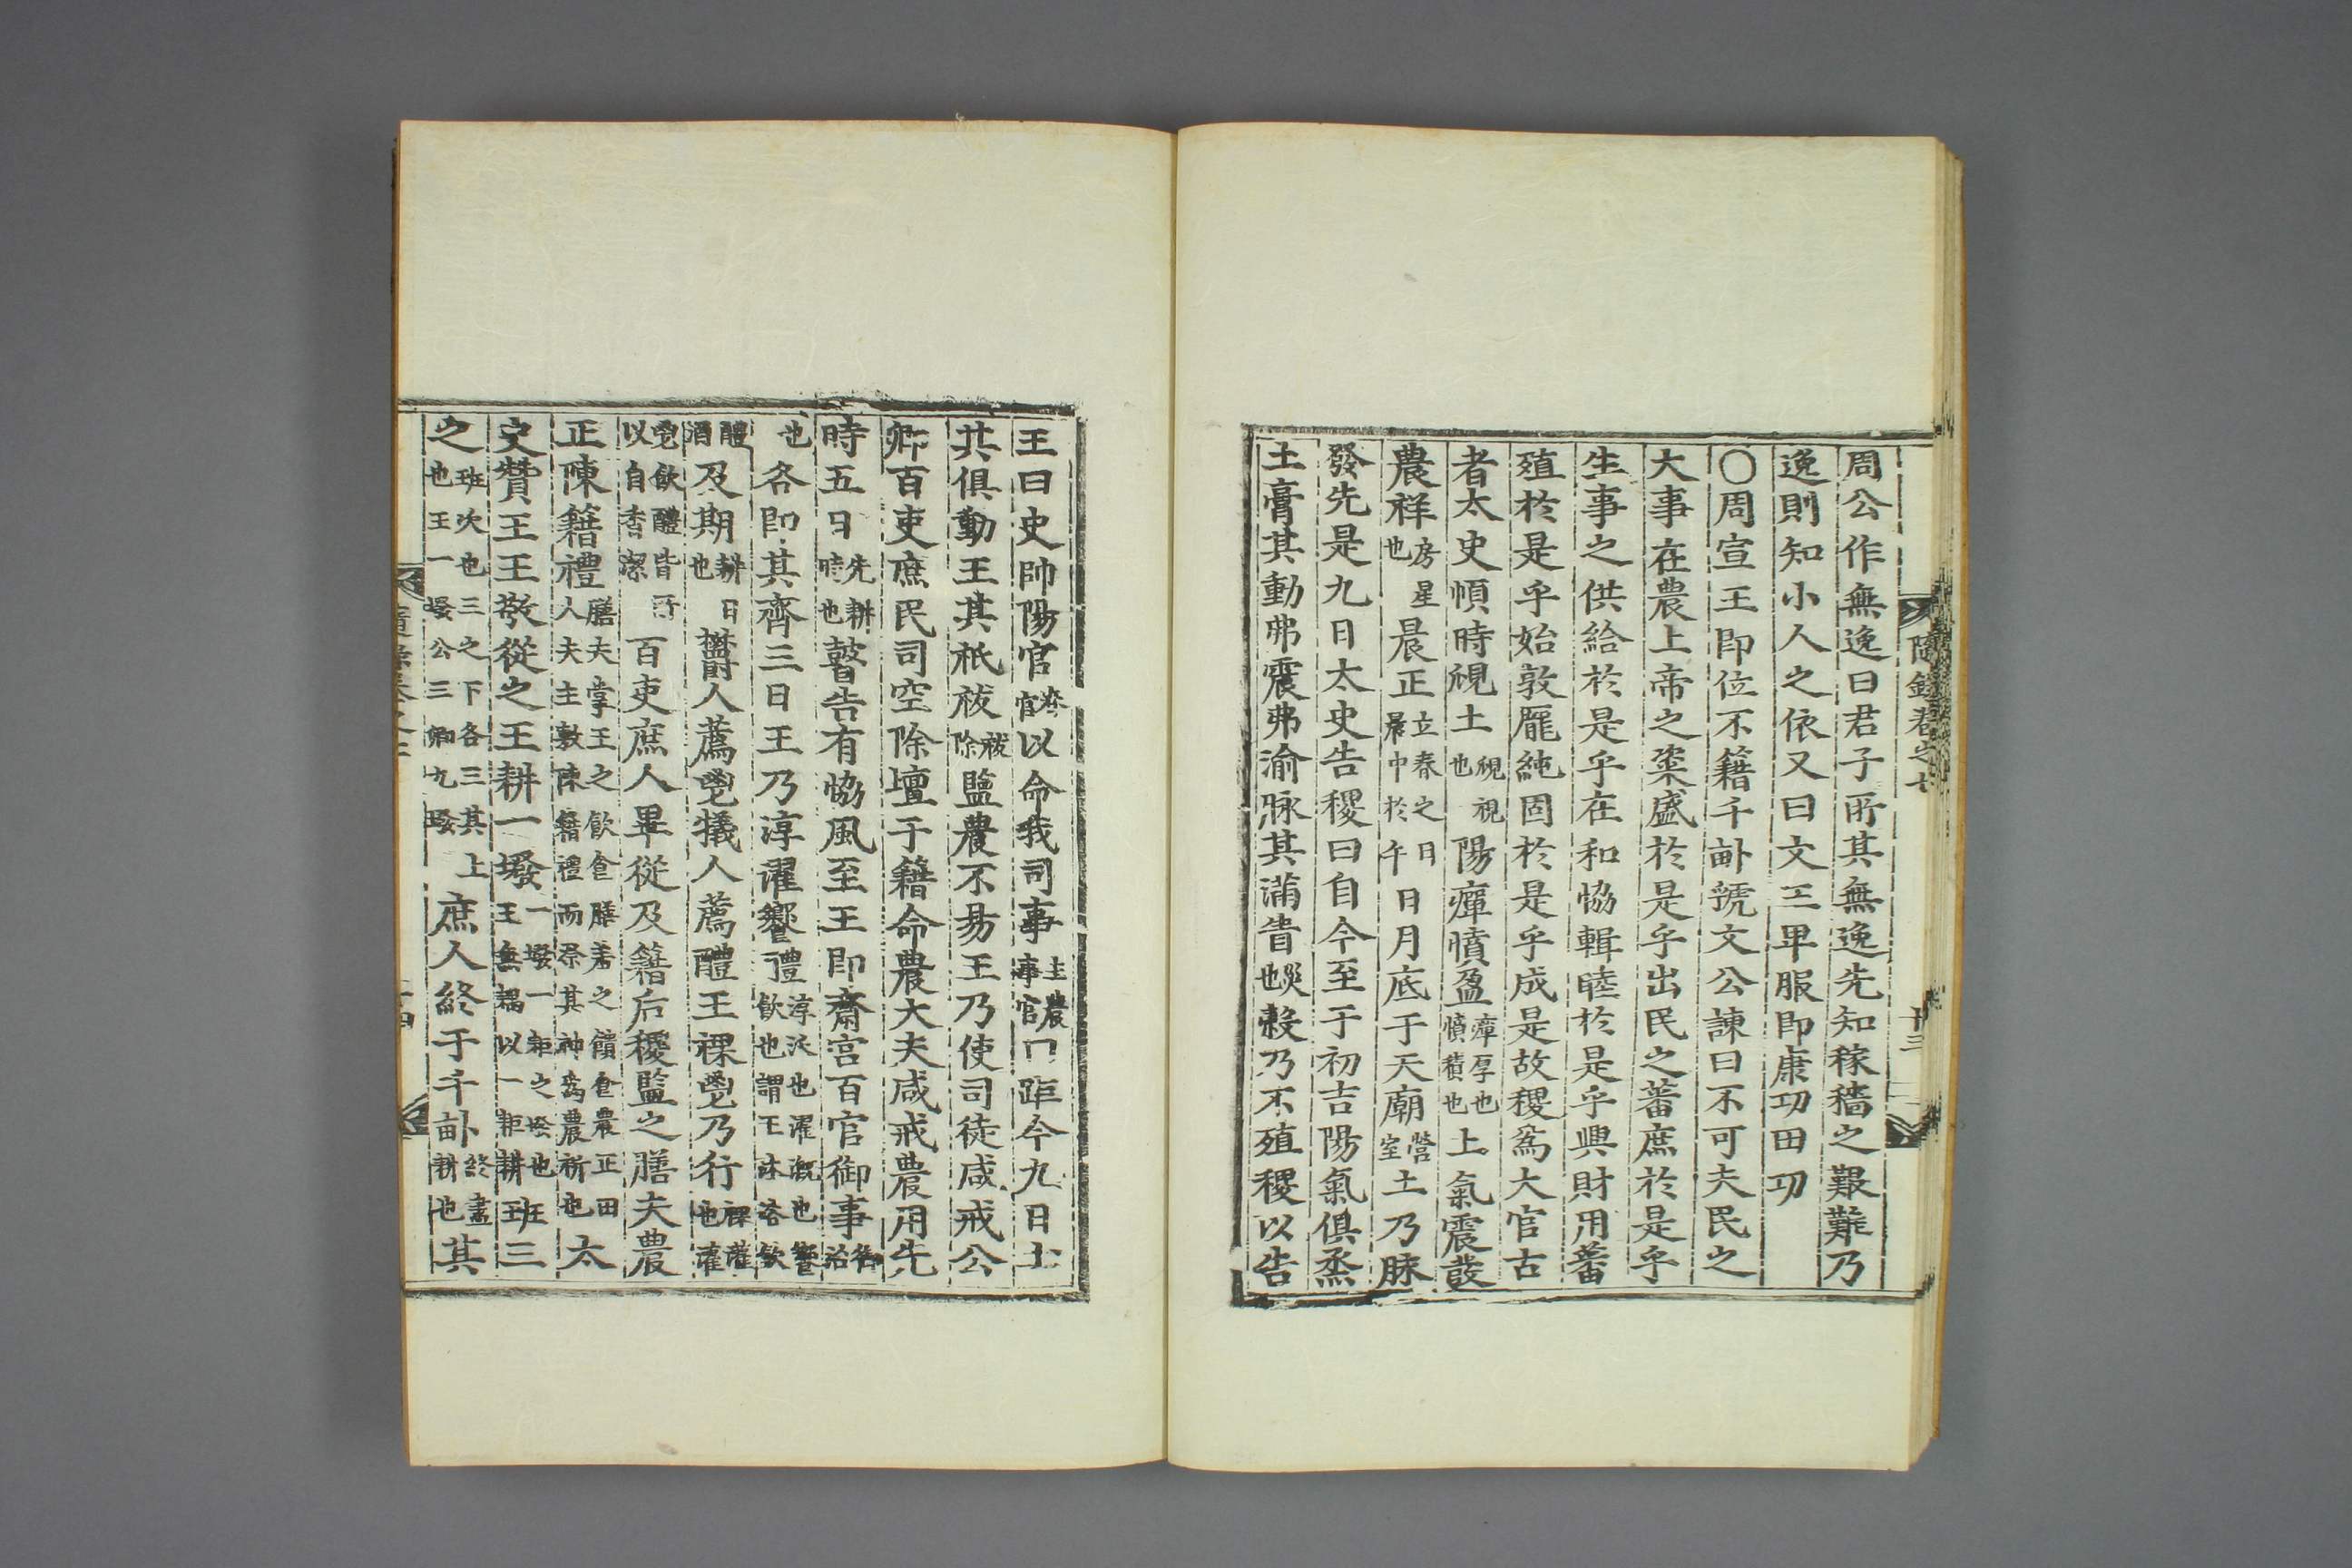 周公作無逸曰君子所其無逸先知稼穡之艱難乃
逸則知小人之依又曰文王卑服即康功田功
○周宣王即位不籍千畝虢文公諫曰不可夫民之
大事在農上帝之粢盛於是乎出民之蕃庶於是乎
生事之供給於是乎在和恊輯睦於是乎興財用蕃
殖於是乎始敦厖純固於是乎成是故稷爲大官古
者太史順時覛土覛視也陽癉憤盈癉厚也憤積也上氣震發
農祥房星也晨正立春之日晨中於午日月底于天廟營室土乃脉
發先是九日太史告稷曰自今至于初吉陽氣俱烝
土膏其動弗震弗渝脉其滿眚災也穀乃不殖稷以告
隨錄卷之七
十三
王曰史帥陽官春官以命我司事主農事官曰距今九日土
其俱動王其祗祓祓除監農不易王乃使司徒咸戒公
卿百吏庶民司空除壇于籍命農大夫咸戒農用先
時五日先耕時也瞽告有恊風至王即齋宮百官御事各治
也各即其齊三日王乃淳濯饗禮淳沃也濯漑也饗飮也謂王沐浴飮
醴酒及期耕日也鬱人薦鬯犧人薦醴王祼鬯乃行祼灌也灌
鬯飮醴皆所以自香潔百吏庶人畢從及籍后稷監之膳夫農
正陳籍禮膳夫掌王之飮食膳羞之饋食農正田人夫主敷陳籍禮而祭其神爲農祈也太
史贊王王敬從之王耕一墢一墢一耜之墢也王無耦以一耜耕班三
之班次也三之下各三其上也王一墢公三卿九墢庶人終于千畝終盡耕也其